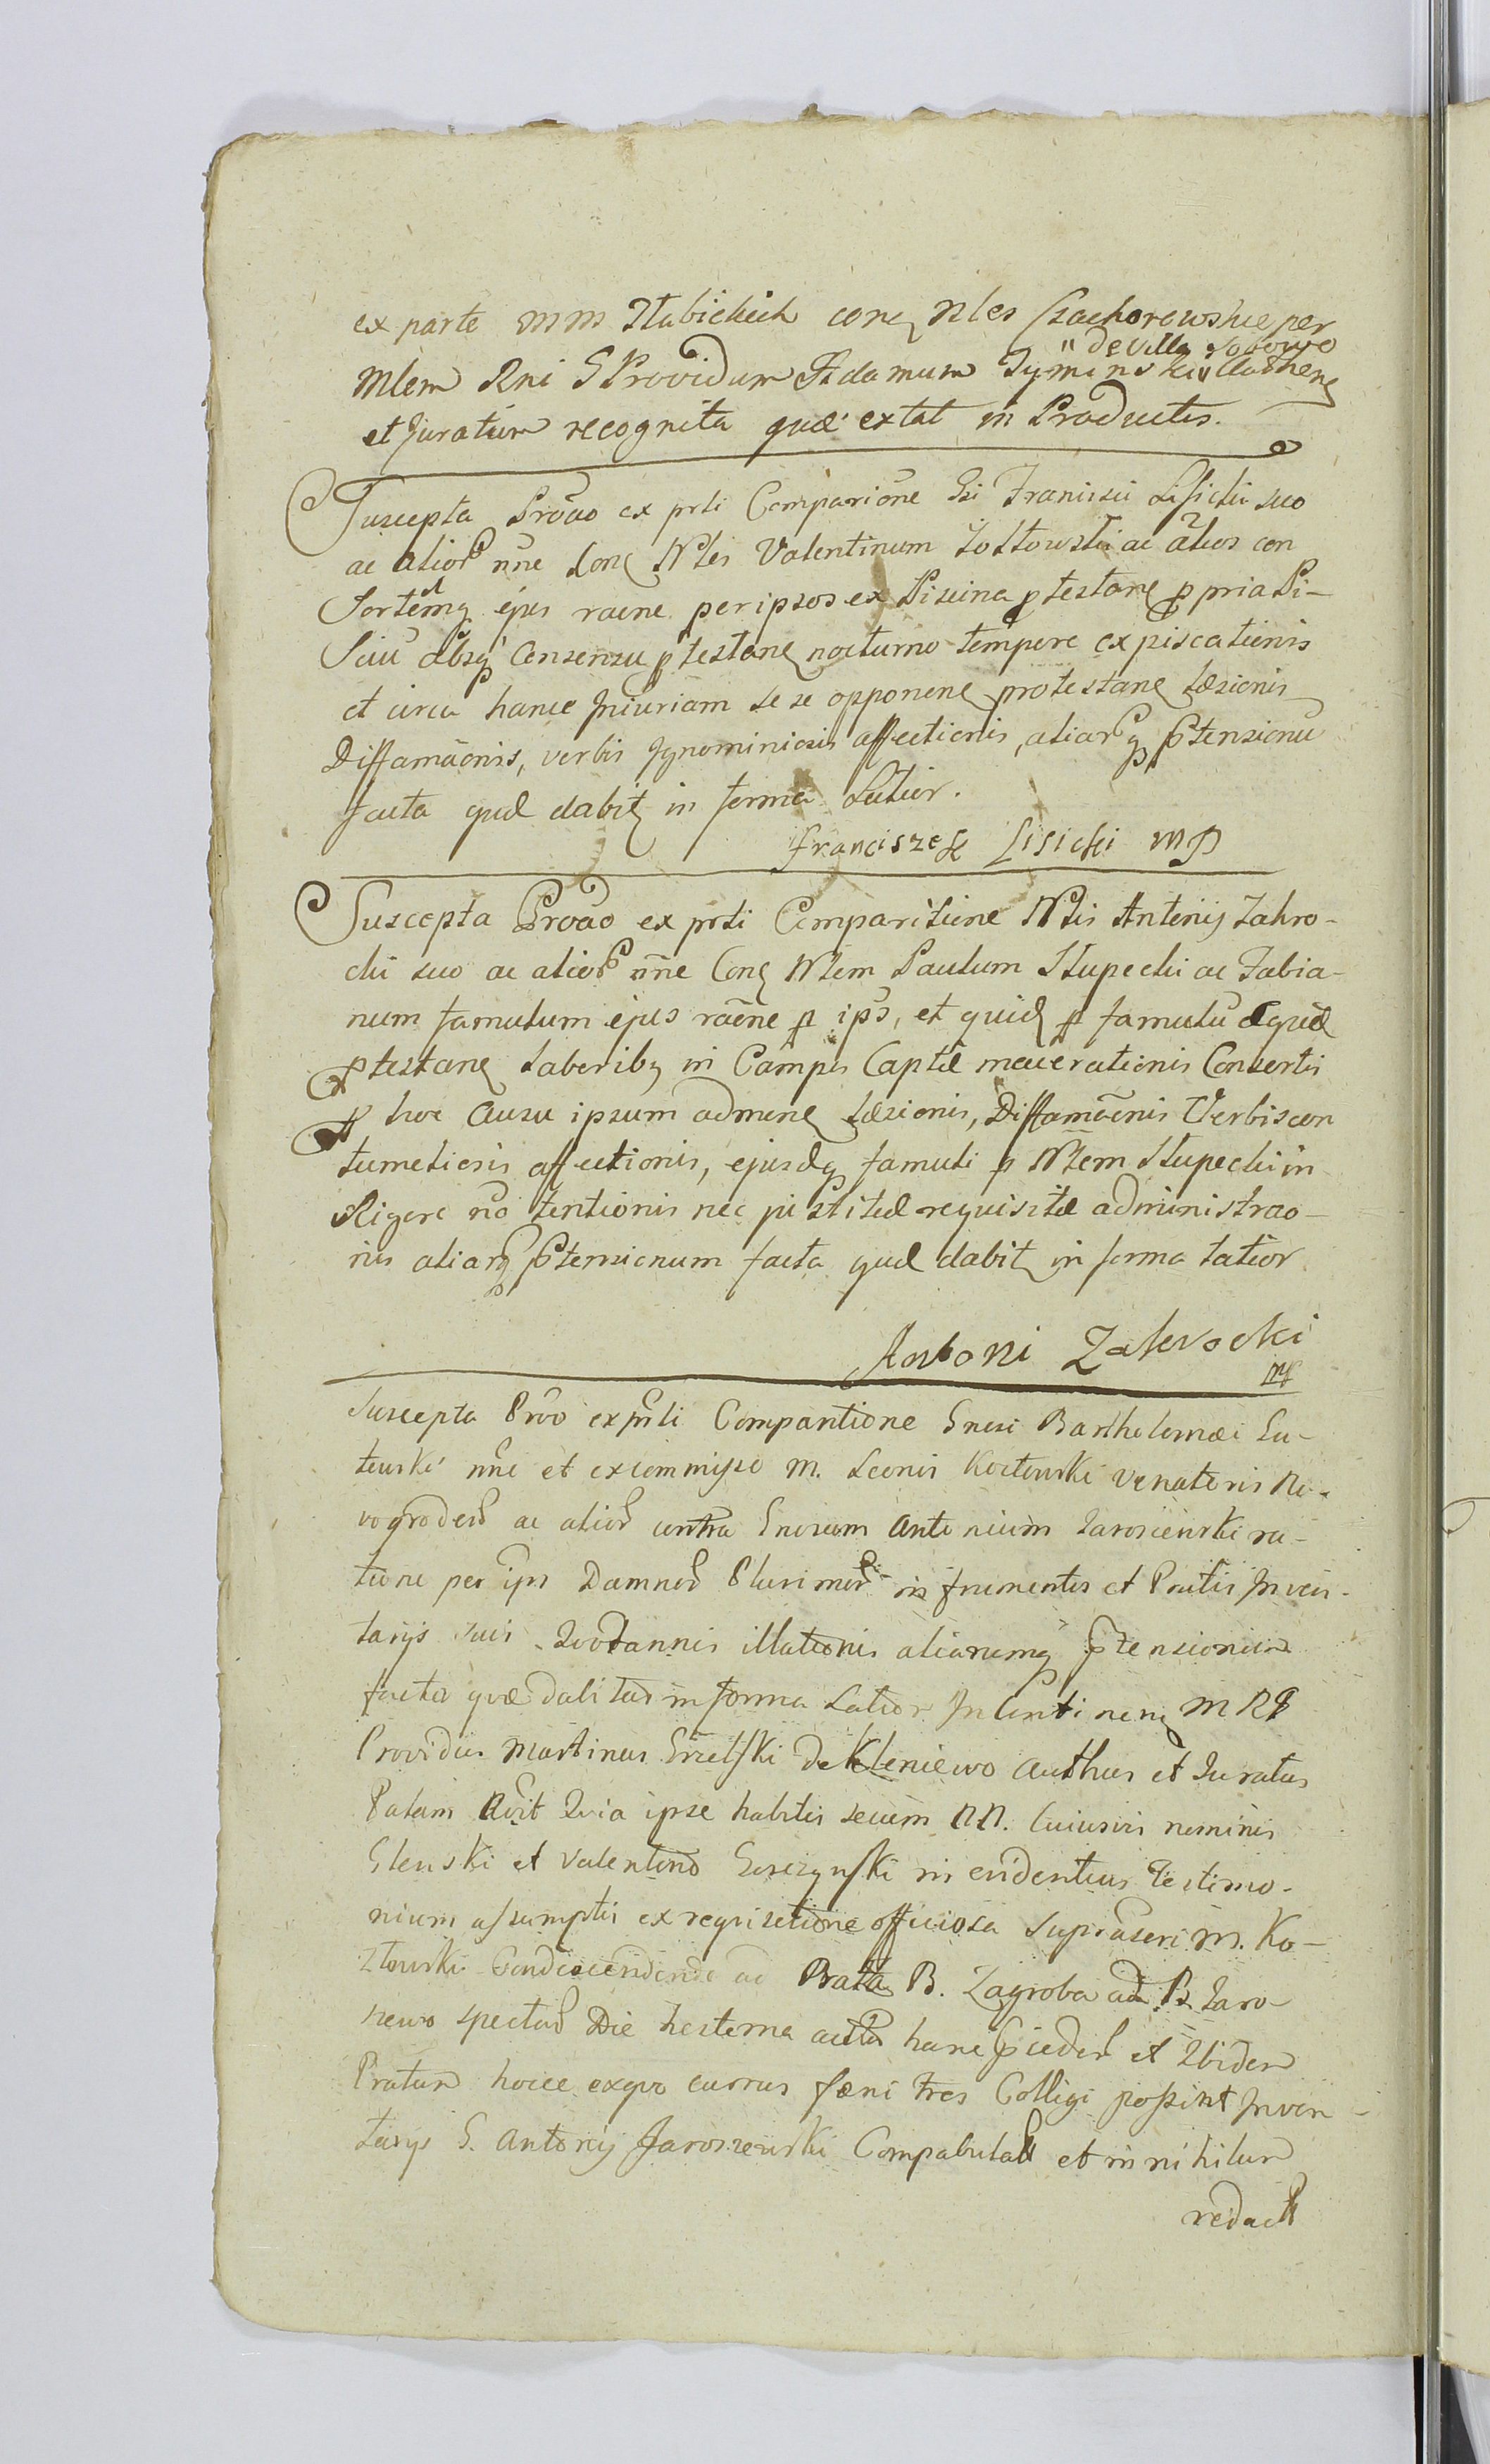 ex parte MM Słubickich conq Nles Czachorowskie per
" de Villa
Mlem Rni S Providum Adamum Tyminski Authenq
et Juratum recognita quæ extat in Productis.
Suscepta Prõao ex prti Comparione Gsi Francisci Lisicki suo
ac alior nne Conq Nles Valentinum Żołtowski ac alios con
Sortemq ejus raene per ipsos ex Piscina ptestanq ppria Pi-
Sciu absq Consensu ptestanq nocturno tempore expiscationis
et circa hance Iniuriam se se opponenq protestanq læsionis
Diffamaõnis, verbis Ignominiosis affectionis, aliarq ptensionu
facta quæ dabit in forma Latior.
Franciszek Lisicki mp
Suscepta Prõao ex prti Comparitione Nlis Antonij Zakro-
cki suo ac alior nne Conq Nlem Paulum Słupecki ac Fabia-
num famulum ejus raene p ips, et quid p famulu æquæ
ptestanq laboribq in Campis Captæ macerationis Consortis
p hoc Ausu ipsum admonenq læsionis, Diffamaõnis Verbis con
tumeliosis affectionis, ejusdq famuli p Nlem Słupecki in
Rigore no tentionis nec justitiæ requisitæ administrao-
nis aliarq ptensionum facta quæ dabit in forma latior
Antoni Zakrocki
mp
Suscepta Prõo ex prti Comparitione Gnesi Barthelomæi Lu-
tewski nne et ex commisso M. Leonis Kozłowski Venatoris No-
vogrodes ac alior contra Gnosum Antonium Jaroszewski ra-
tione per ips Damnor Plurimor in frumentis et Pratis Inven-
tarijs suis Quotannis illationis aliarumq ptensionum
facta quæ dabitur in forma Latior In Continenq M R
Providus Martinus Grzelski de Kleniewo Authus et Juratus
Palam Rvit Quia ipse habitis secum NN. Cuiusvis nominis
Glenski et Valentino Goszynski in evidentius Testimo-
nium assumptis ex requisitione officiosa Suprascri M. Ko-
złowski Condescendendo ad Prata B. Zagroba ad B. Jaro-
szewo spectan Die hesterna actu hanc pceden et Ibidem
Pratum hocce ex quo currus fæni tres Colligi possint Inven-
tarijs G. Antonij Jaroszewski Compabulat et in nihilum
redact